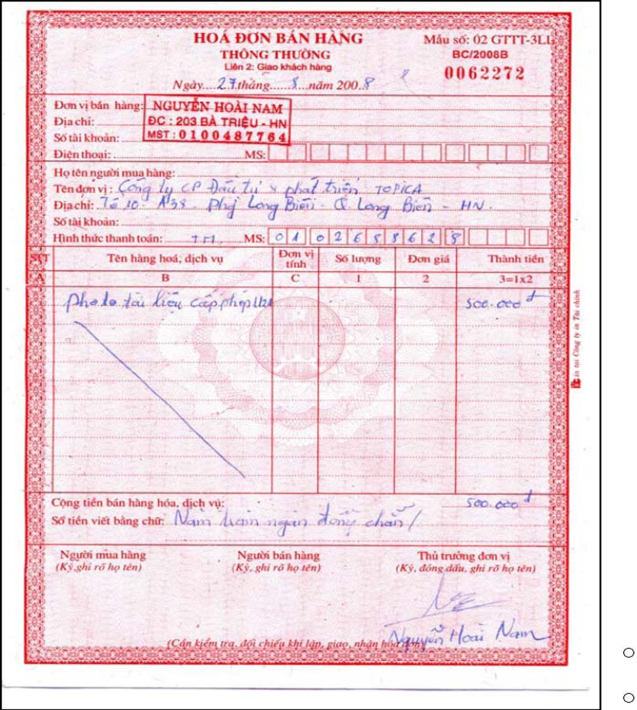 HOÁ ĐƠN BÁN HÀNG
THÔNG THƯỜNG
Liên 2: Giao khách hàng
Ngày....27.tháng......8...năm 200.8
Mẫu số: 02 GTTT-3LL
BC/2008B
0062272
Đơn vị bán hàng: NGUYỄN HOÀI NAM
Địa chỉ: ĐC : 203 BÀ TRIỆU - HN
Số tài khoản: MST : 0100487764
Điện thoại: MS:
Họ tên người mua hàng:
Tên đơn vị: Công ty CP Đầu tư & phát triển TOPICA
Địa chỉ: Tổ 10 - A38 - Long Biên - Q Long Biên - HN.
Số tài khoản:
Hình thức thanh toán: TM. MS: 01 026 8
STT Tên hàng hoá, dịch vụ Đơn vị tính Số lượng Đơn giá Thành tiền
A B C 1 2 3=1x2
photo tài liệu cấp phép 500.000đ
Cộng tiền bán hàng hóa, dịch vụ: 500.000đ
Số tiền viết bằng chữ: Năm trăm ngàn đồng chẵn/
Người mua hàng Người bán hàng Thủ trưởng đơn vị
(Ký, ghi rõ họ tên) (Ký, ghi rõ họ tên) (Ký, đóng dấu, ghi rõ họ tên)
Nguyễn Hoài Nam
(Cần kiểm tra, đối chiếu khi lập, giao, nhận hóa đơn)
In tại Công ty in Tài chính